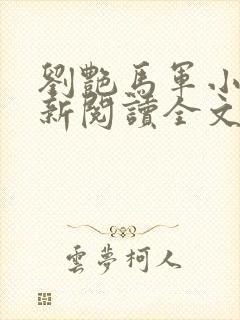 劉艷馬軍小
新閱讀全文
雲夢柯人